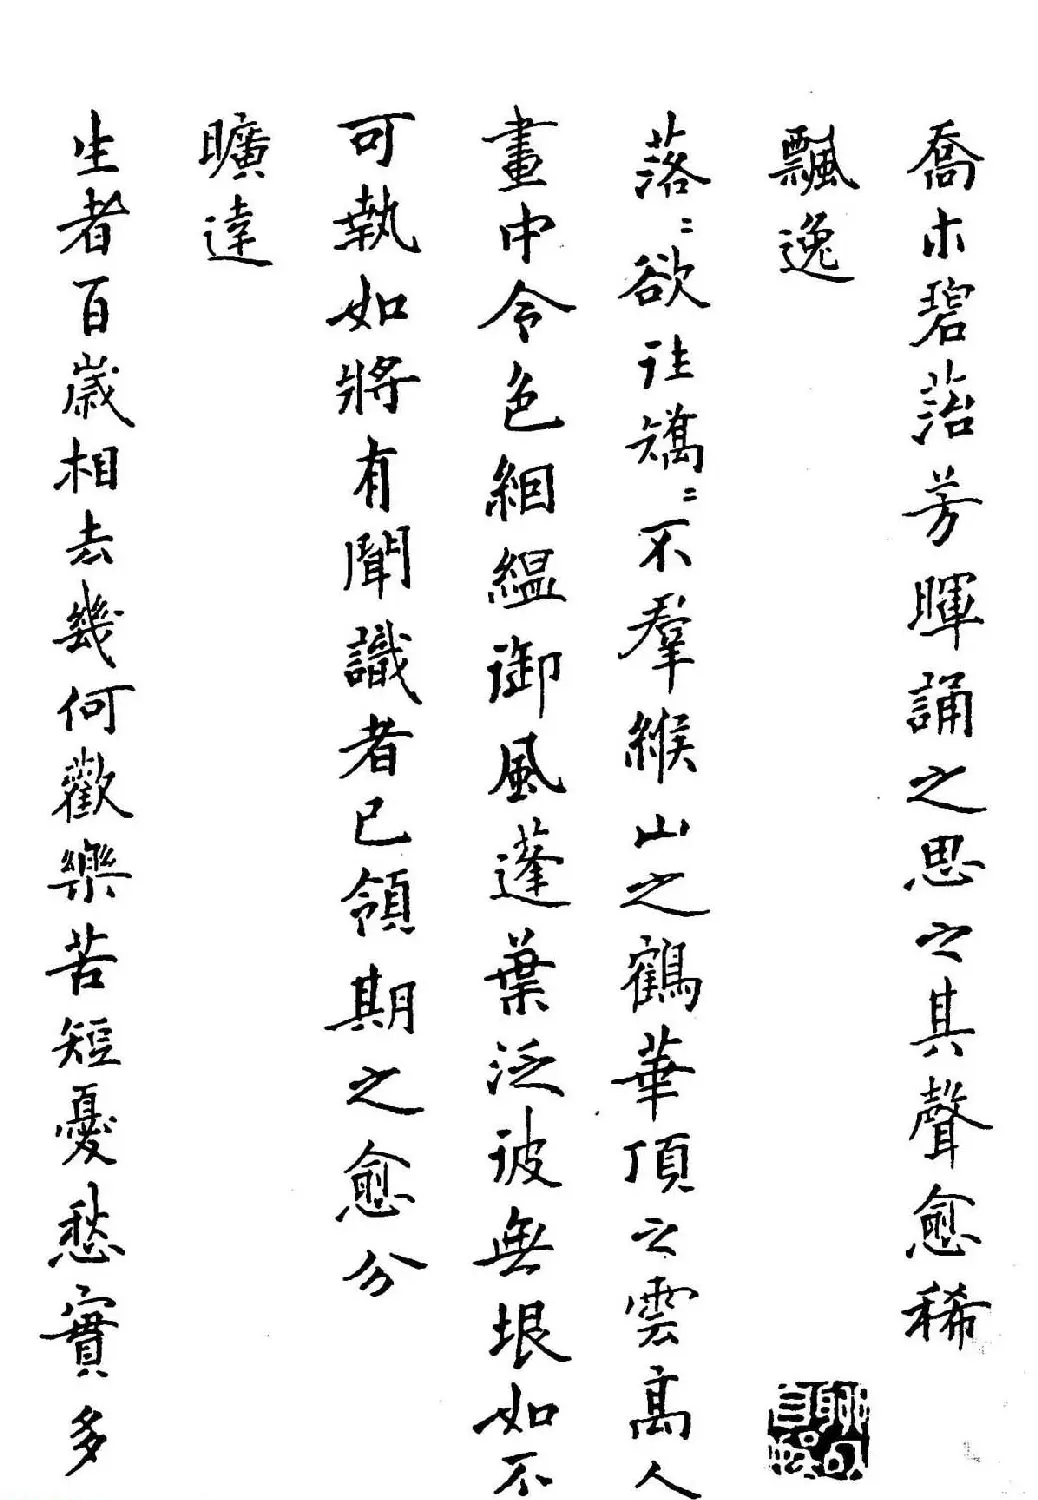 喬木碧菭芳暉誦之思之其聲愈稀
飄逸
聊可自娛
落〻欲往矯〻不羣緱山之鶴華頂之雲高人
畫中令色絪緼御風蓬葉泛彼無垠如不
可執如將有聞識者已領期之愈分
曠達
生者百歲相去幾何歡樂苦短憂愁實多